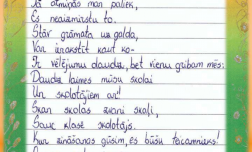 Ja atmiņas man paliek,
Es neaizmirstu to.
Stāv grāmata uz galda,
Var ierakstīt kaut ko-
Ir vēlējumu daudz, bet vienu gribam mēs:
Daudz laimes mūsu skolai
Un skolotājiem arī!
Skan skolas zvani skaļi,
Sauc klasē skolotājs.
Kur zināšanas gūsim, es būšu